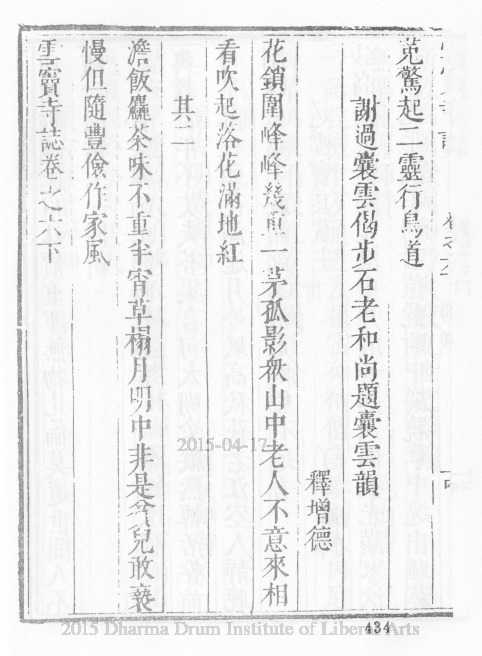 菟驚起二靈行鳥道
謝過囊雲偈步石老和尚題囊雲韻
釋增德
花鎖圍峰峰幾重一茅孤影眾山中老人不意來相
看吹起落花滿地紅
其二
澹飯麤茶味不重半宵草榻月明中非是貧兒敢褻
慢但隨豐儉作家風
雪竇寺誌卷之六下
434
2015-04-17
2015 Dharma Drum Institute of Liberal Arts